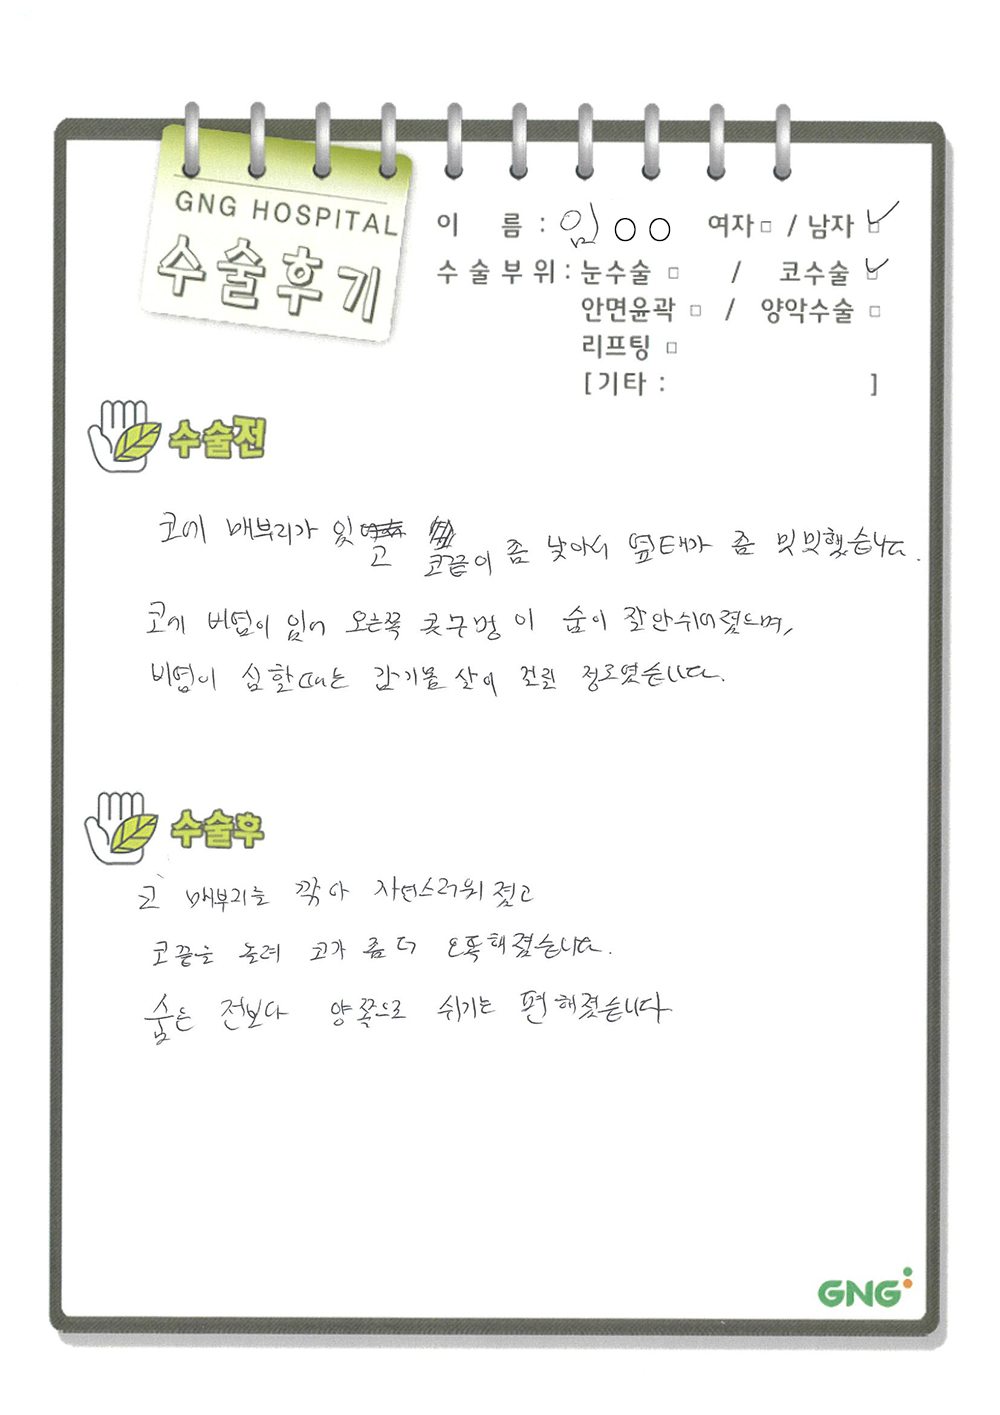 GNG HOSPITAL
수술후기
이 름 : 임○○ 여자□ / 남자☑
수술부위 : 눈수술 □ / 코수술 ☑
안면윤곽 □ / 양악수술 □
리프팅 □
[기타 : ]
수술전
코에 매부리가 있고 코끝이 좀 낮아서 옆태가 좀 밋밋했습니다.
코에 비염이 있어 오른쪽 콧구멍이 숨이 잘 안쉬어졌으며,
비염이 심할때는 감기몸살이 걸릴 정도였습니다.
수술후
코 매부리를 깍아 자연스러워졌고
코끝을 높려 코가 좀 더 오똑해졌습니다.
숨은 전보다 양쪽으로 쉬기는 편해졌습니다
GNG